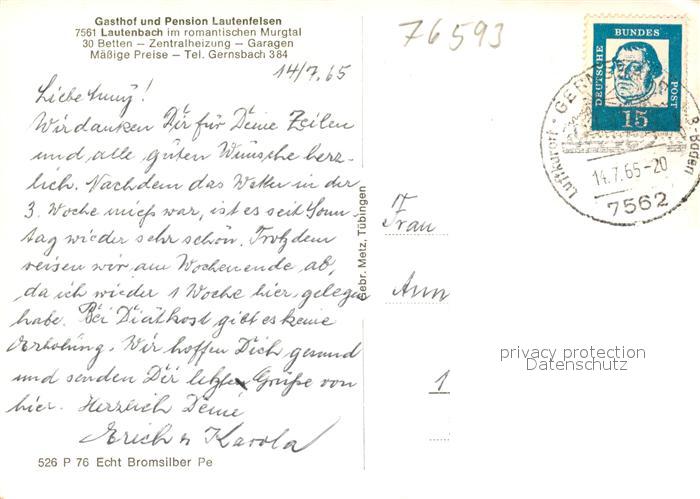 Gasthof und Pension Lautenfelsen
7561 Lautenbach im romantischen Murgtal
30 Betten – Zentralheizung – Garagen
Mäßige Preise – Tel. Gernsbach 384
76593
14/7.65
Liebe
Wir danken Dir für Deine Zeilen
und alle guten Wünsche herz-
lich. Nachdem das Wetter in der
3. Woche mies war, ist es seit Sonn
tag wieder sehr schön. Trotzdem
reisen wir am Wochenende ab,
da ich wieder 1 Woche hier gelegen
habe. Bei Diätkost gibt es keine
Erholung. Wir hoffen Dich gesund
und senden Dir letzte Grüße von
hier. Herzlich Deine
Erich u Karola
526 P 76 Echt Bromsilber Pe
Gebr. Metz, Tübingen
DEUTSCHE BUNDES POST
15
Luftkurort
14.7.65-20
7562
Frau
Ann
1
privacy protection
Datenschutz